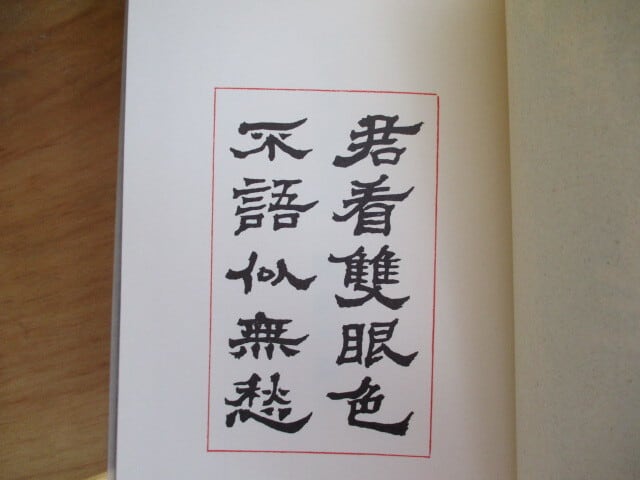 君看雙眼色
不語似無愁